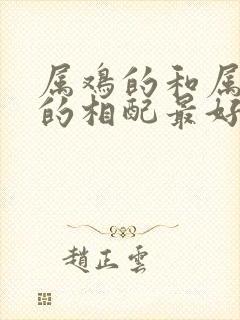 属鸡的和属
的相配最好
趙正雲